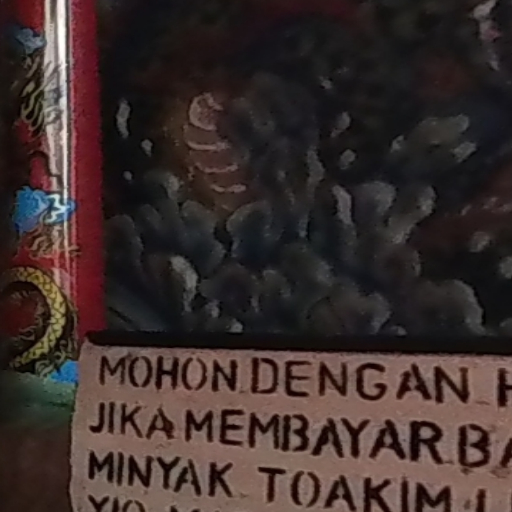 MOHON DENGAN
JIKA MEMBAYAR
MINYAK TOAKIM